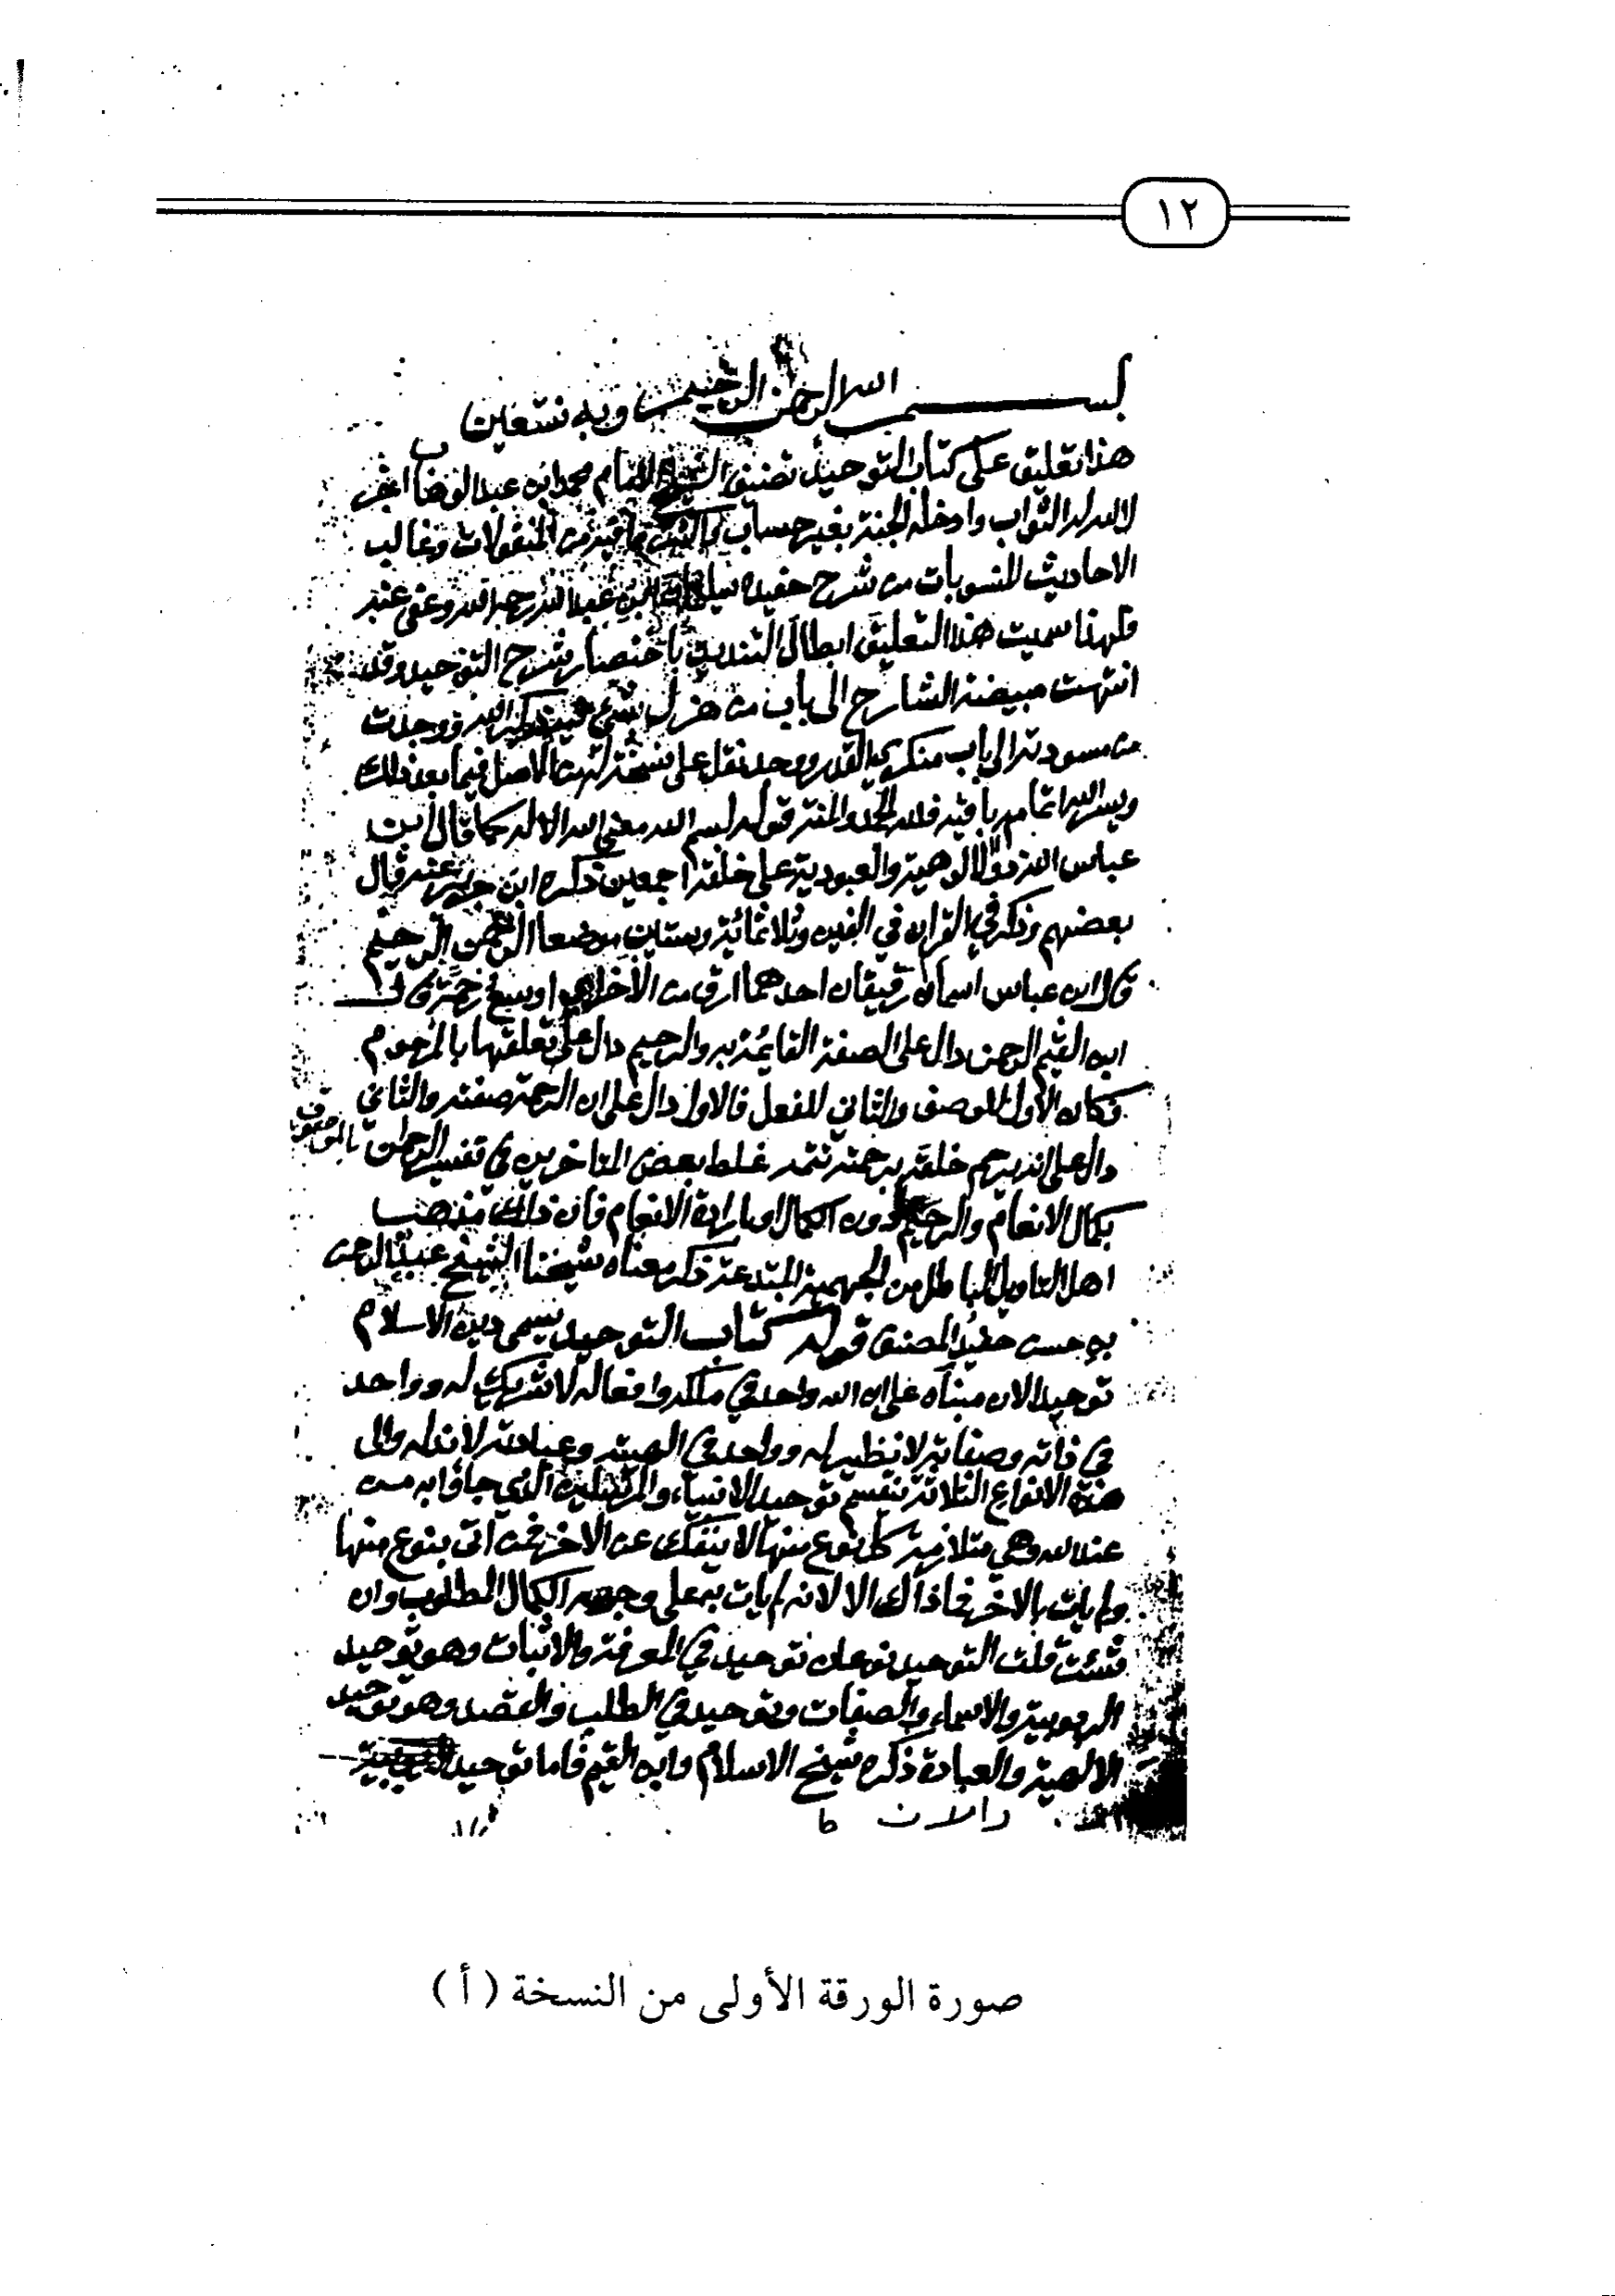 ١٢
بسم الله الرحمن الرحيم وبه نستعين
هذا تعليق على كتاب التوحيد تصنيف الشيخ الامام محمد ابن عبد الوهاب اجزل
الله له الثواب وادخله الجنة بغير حساب واكثر ما فيه من المنقولات وغالب
الاحاديث المنسوبات من شرح حفيده سليمان ابن عبد الله رحمه الله وعفى عنه
فلهذا سميت هذا التعليق ابطال التنديد باختصار شرح التوحيد وقد
انتهت مبيضة الشارح الى باب من هزل بشيء فيه ذكر الله ووجدت
من مسودته الى باب منكري القدر فيما بعد ذلك
ويسر الله اتمام باقيه فلله الحمد والمنة قوله بسم الله معنى الله الاله كما قال ابن
عباس الله ذو الالوهية والعبودية على خلقه اجمعين ذكره ابن جرير عنه قال
بعضهم وذكر في القران في الفين وثلاثمائة وستين موضعا الرحمن الرحيم
قال ابن عباس اسمان رقيقان احدهما ارق من الاخر اي اوسع رحمة قال
ابن القيم الرحمن دال على الصفة القائمة به والرحيم دال على تعلقها بالمرحوم
فكان الاول للوصف والثاني للفعل فالاول دال على ان الرحمة صفته والثاني
دال على انه يرحم خلقه برحمته غلط بعض المتاخرين في تفسير الرحمن
بكمال الانعام والرحيم دون الكمال او بارادة الانعام فان ذلك مذهب
اهل التاويل الباطل من الجهمية المبتدعة ذكر معناه شيخنا الشيخ عبد الرحمن
بن حسن حفيد المصنف قوله كتاب التوحيد يسمى دين الاسلام
توحيدا لان مبناه على ان الله واحد في ملكه وافعاله لا شريك له وواحد
في ذاته وصفاته لا نظير له وواحد في الهيته وعبادته لا ند له والى
هذه الانواع الثلاثة تنقسم توحيد الانبياء والمرسلين الذي جاؤا به من
عند الله وهي متلازمة كل نوع منها لا ينفك عن الاخر فمن اتى بنوع منها
ولم يات بالاخر فما ذاك الا لانه لم يات به على وجه الكمال المطلوب وان
شئت قلت التوحيد نوعان توحيد في المعرفة والاثبات وهو توحيد
الربوبية والاسماء والصفات وتوحيد في الطلب والقصد وهو توحيد
الالهية والعبادة ذكره شيخ الاسلام وابن القيم فاما توحيد
صورة الورقة الأولى من النسخة (أ)